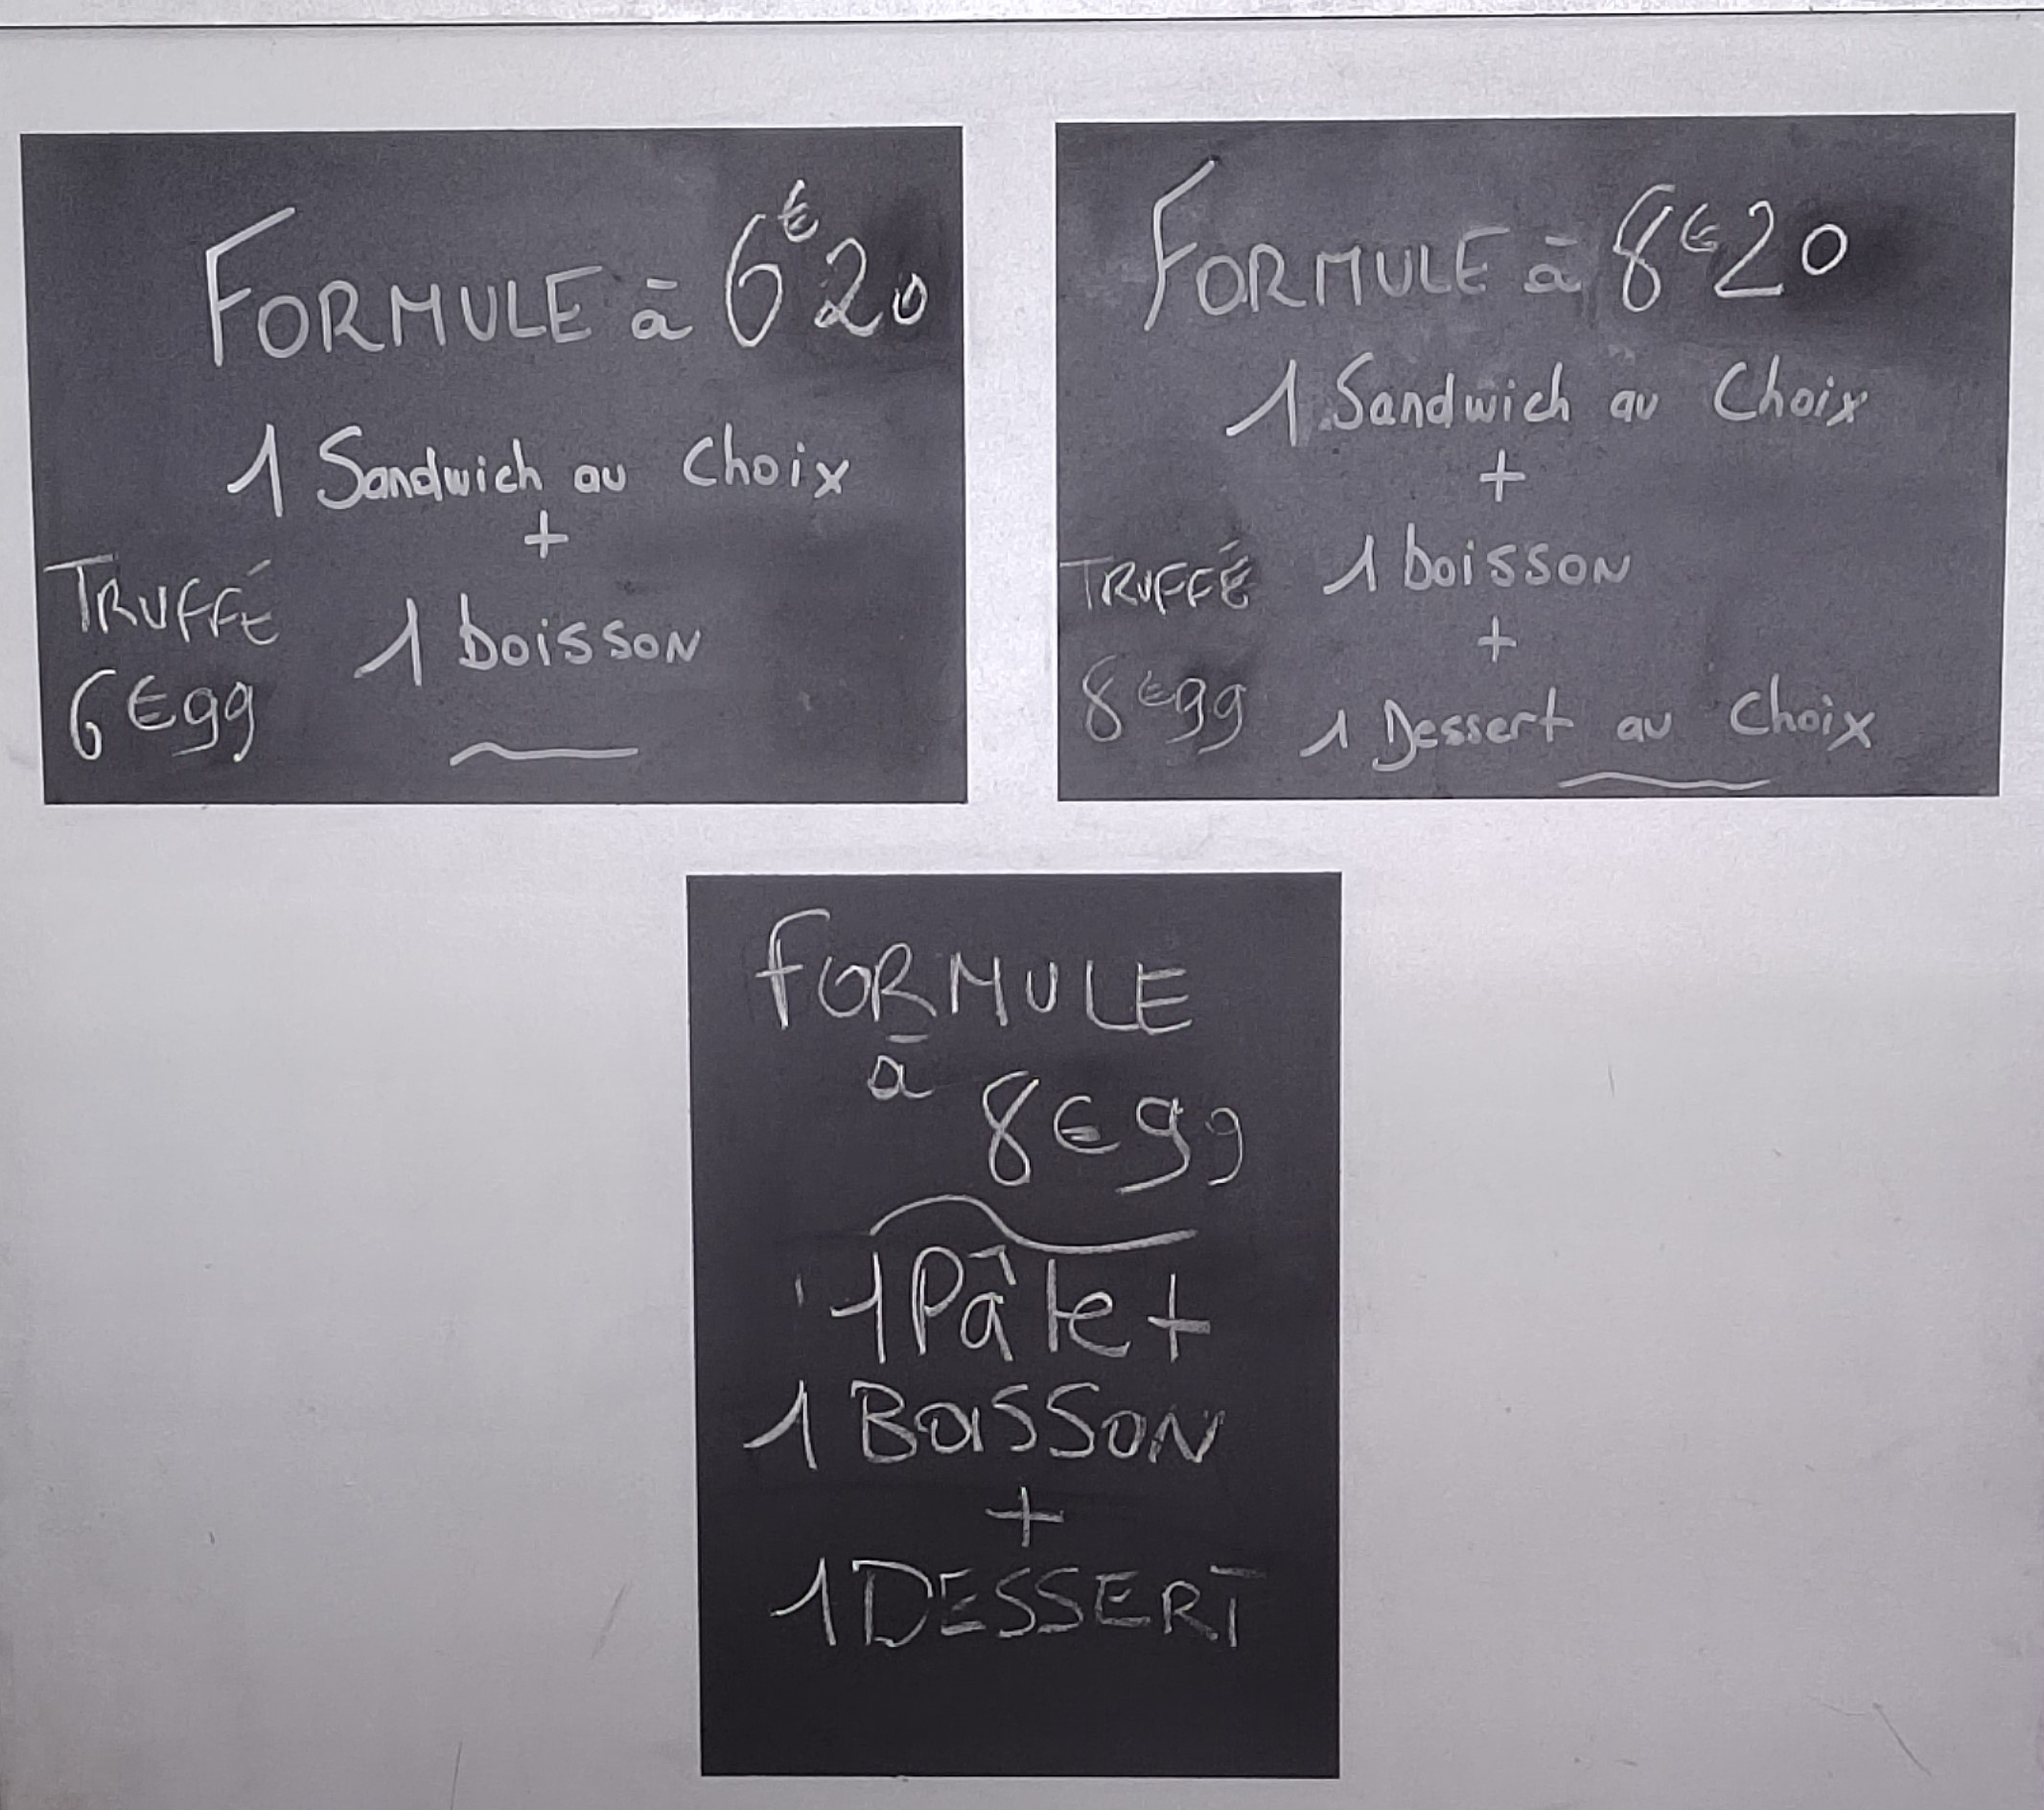 FORMULE à 6€20
1 Sandwich au Choix
+
1 boisson
TRUFFÉ
6€99
FORMULE à 8€20
1 Sandwich au Choix
+
1 boisson
+
1 Dessert au Choix
TRUFFÉ
8€99
FORMULE
à
8€99
1 Pâte +
1 BOISSON
+
1 DESSERT